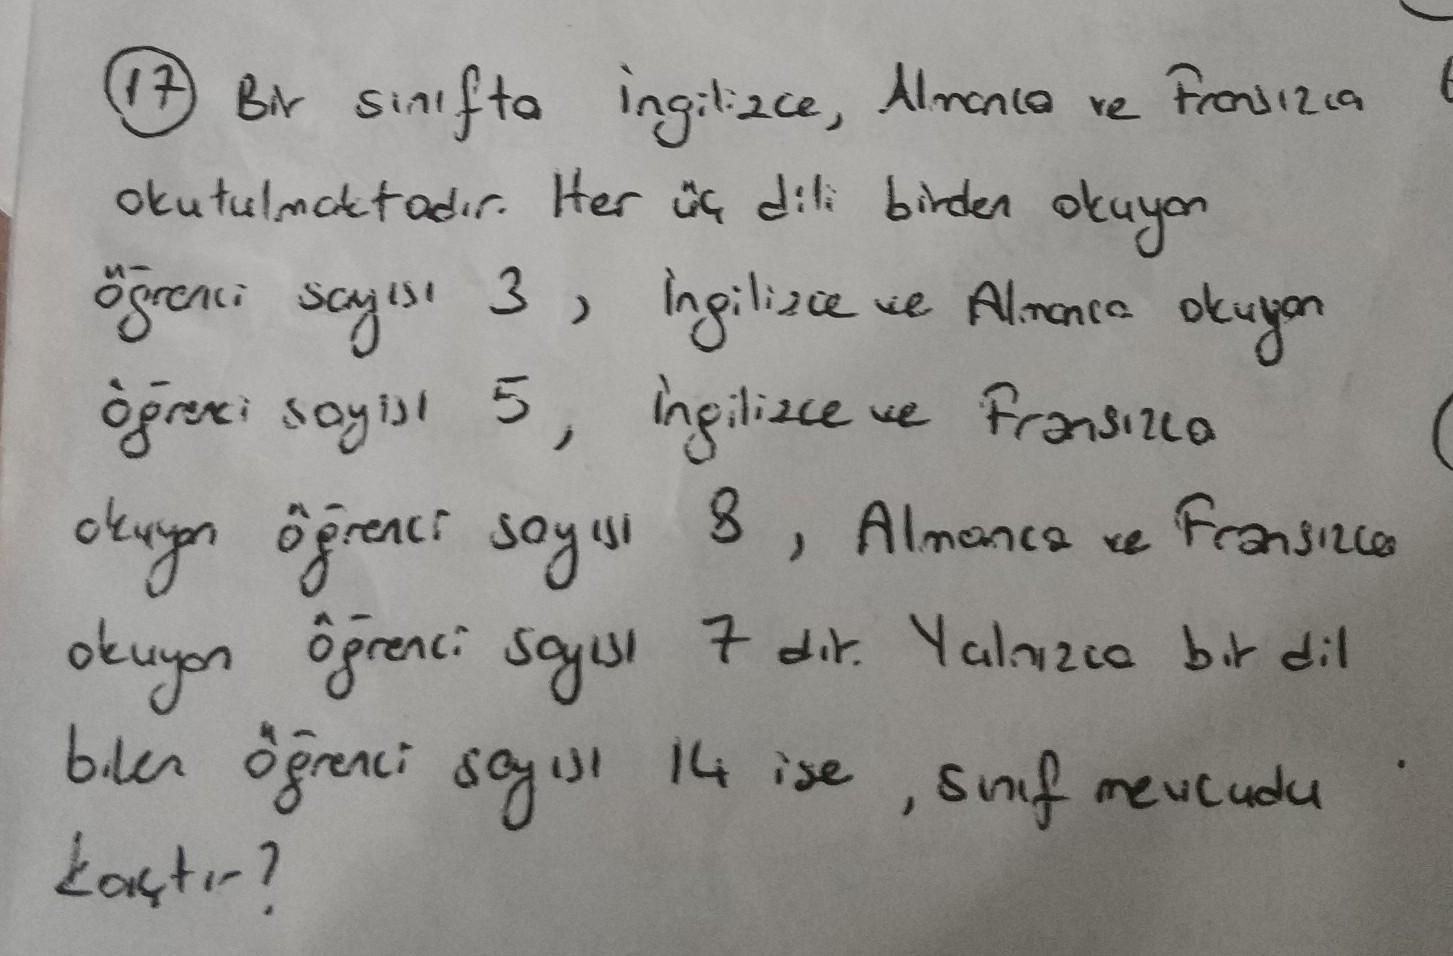 17 Bir sınıfta İngilizce, Almanca ve Fransızca
okutulmaktadır. Her üç dili birden okuyan
öğrenci sayısı 3, İngilizce ve Almanca okuyan
öğrenci sayısı 5, İngilizce ve Fransızca
okuyan öğrenci sayısı 8, Almanca ve Fransızca
okuyan öğrenci sayısı 7 dir. Yalnızca bir dil
bilen öğrenci sayısı 14 ise, sınıf mevcudu
kaçtır?